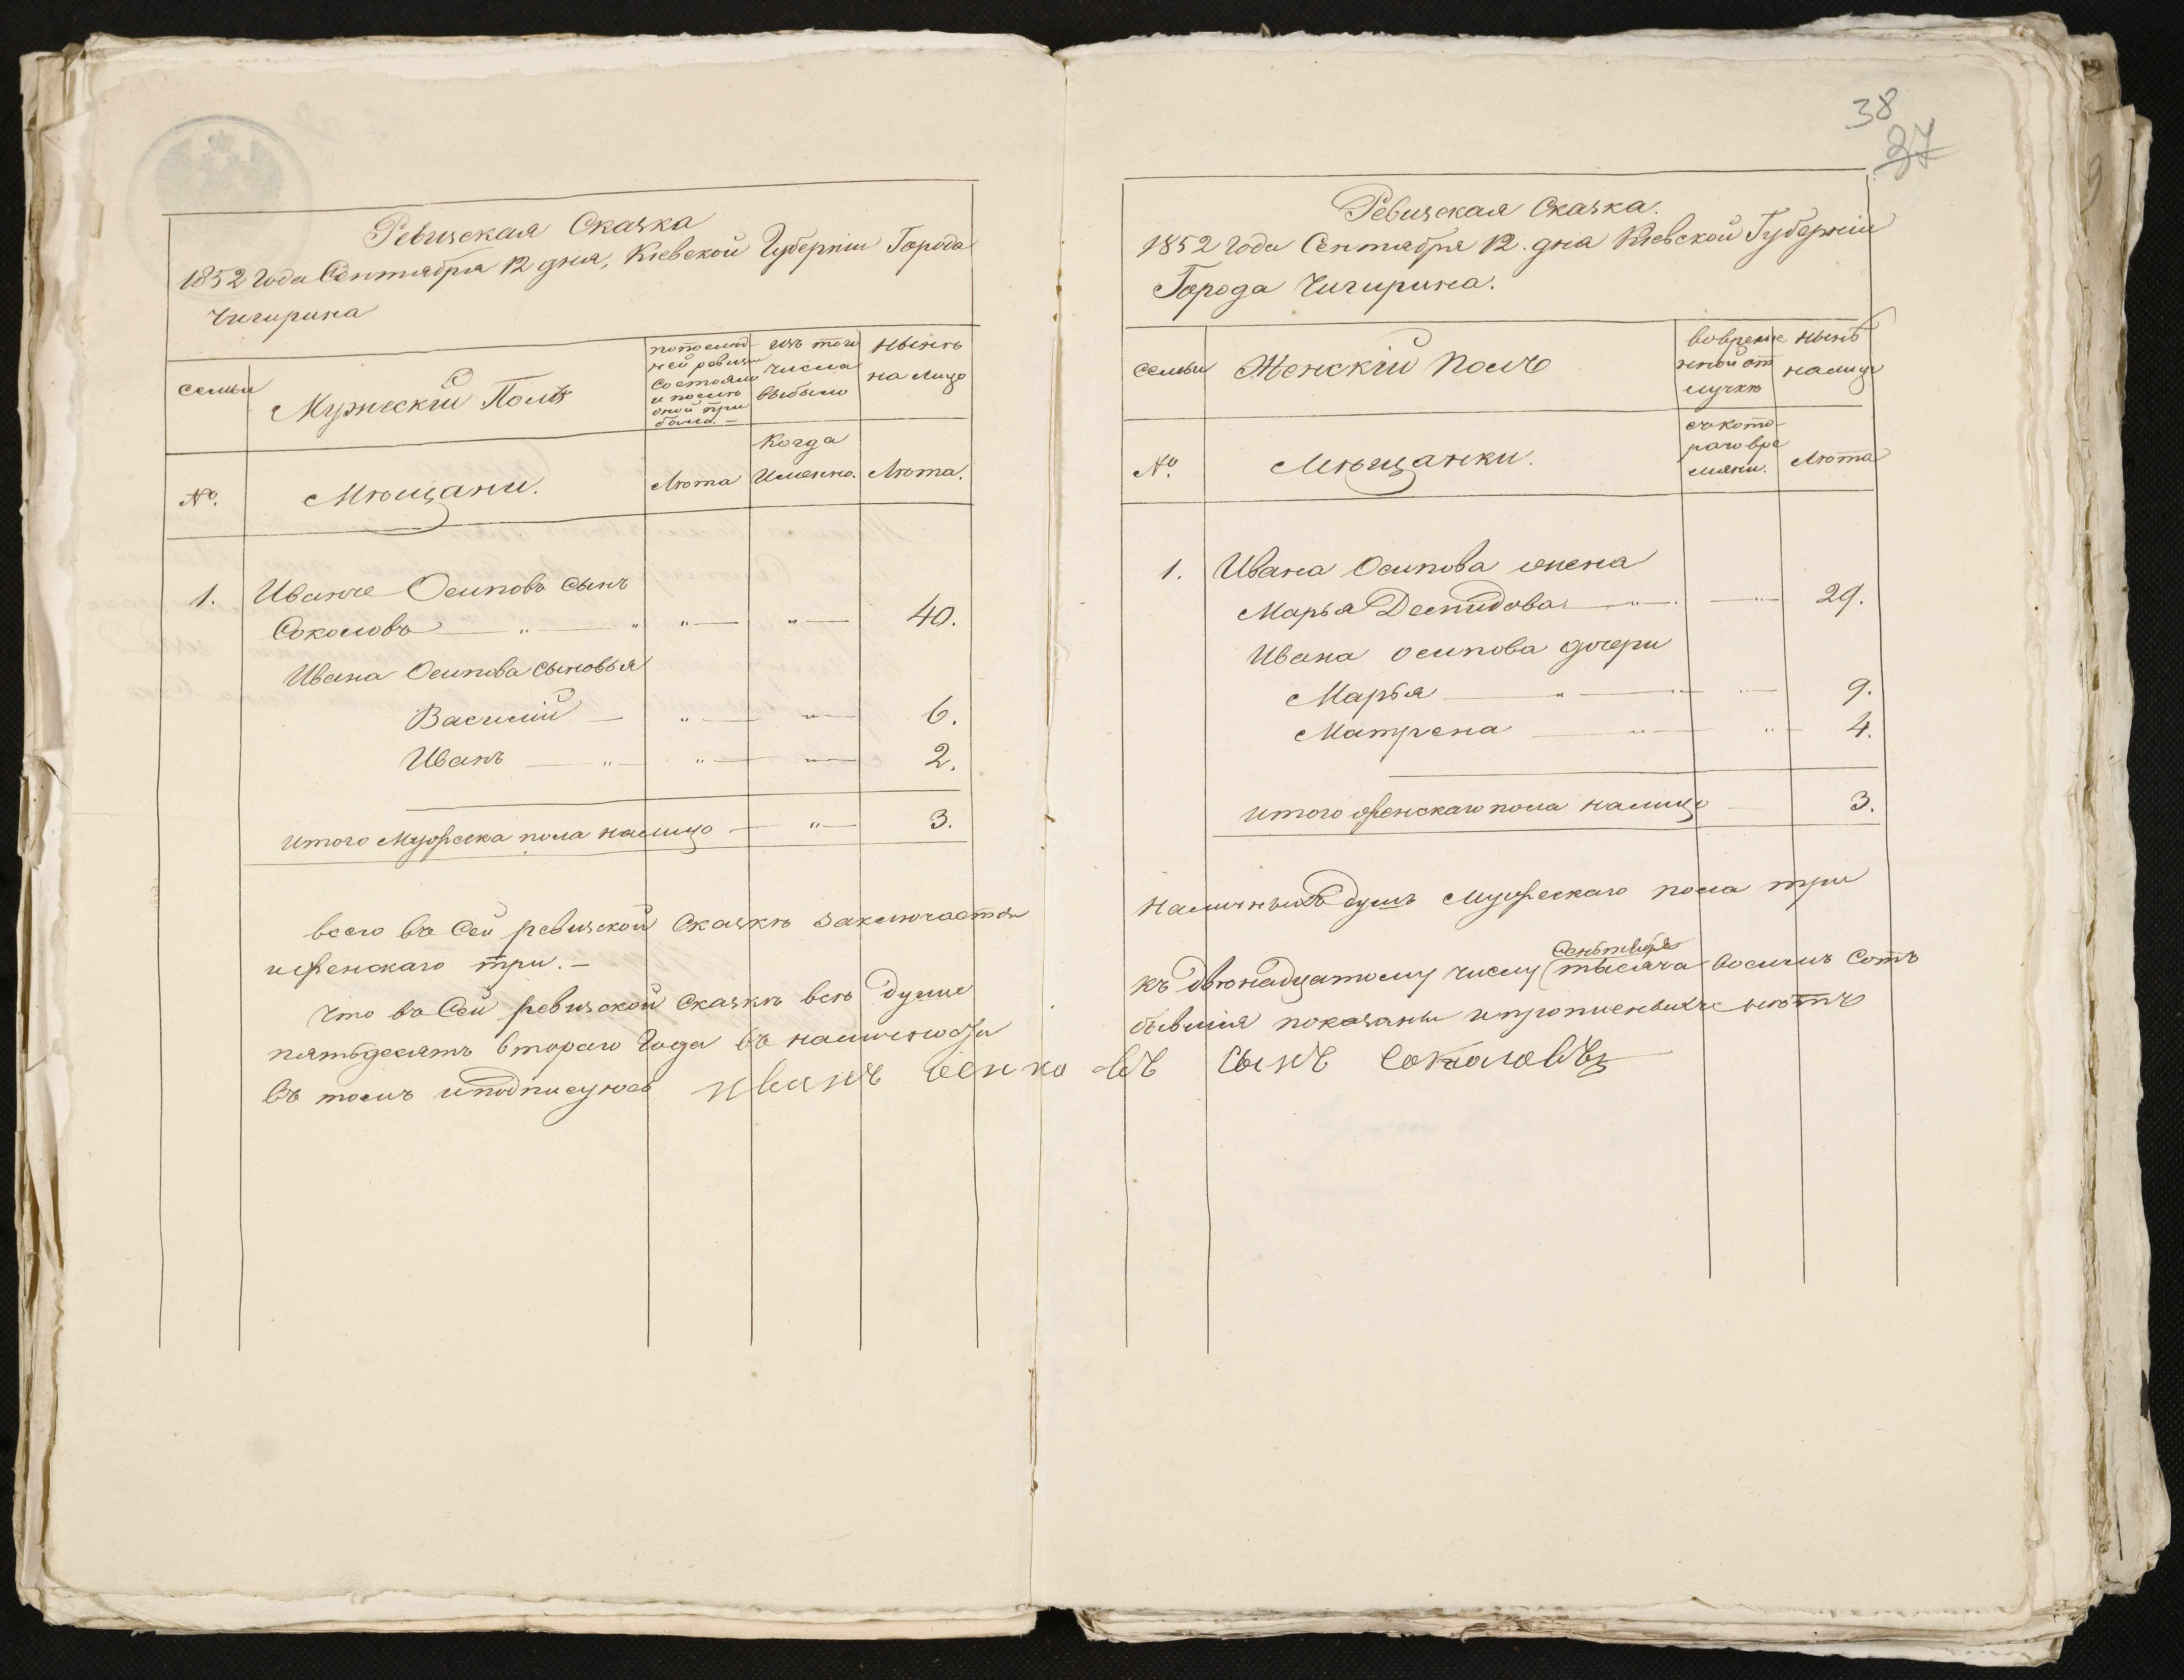 Ревизская Сказка
1852 Года Сентября 12 дня, Кіевской Губерніи Города
Чигирина
семьи
Мужескій Полъ
по послед-
ней ревизіи
состояло
и после
оной при
было. —
изъ того
числа
выбыло
ныне
на лицо
№.
Мѣщани.
Лѣта
Когда
Именно.
Лѣта.
1. Иванъ Осиповъ сынъ
Соколовъ — „ — „ „ — „ — 40.
Ивана Осипова сыновья
Василій — „ — „ — 6.
Иванъ — „ — „ — „ — 2.
итого Мужеска пола налицо — „ — 3.
всего въ Сей ревизской Сказкѣ заключается
и женскаго три. —
Что въ Сей ревизской Сказкѣ всѣ души
пятьдесятъ втораго Года въ наличности
въ томъ и подписуюсь иванъ осипо
38
37
Ревизская Сказка.
1852 Года Сентября 12. дня Кіевской Губерніи
Города Чигирина.
семьи
Женскій полъ
во време
нной от
лучкѣ
нынѣ
налице
№.
Мѣщанки.
съ кото-
раго вре
мяни.
Лѣта
1. Ивана Осипова жена
Марья Демидова — „ — — „ — 29.
Ивана осипова дочери
Марья — „ — — „ — 9.
Матрена — „ — „ — 4.
итого женскаго пола налицо — 3.
наличныхъ душъ мужескаго пола три
Сентября
къ двѣнадцатому числу (тысяча восемь сотъ
бывшія показаны и прописныхъ нѣтъ
въ сынъ Соколовъ